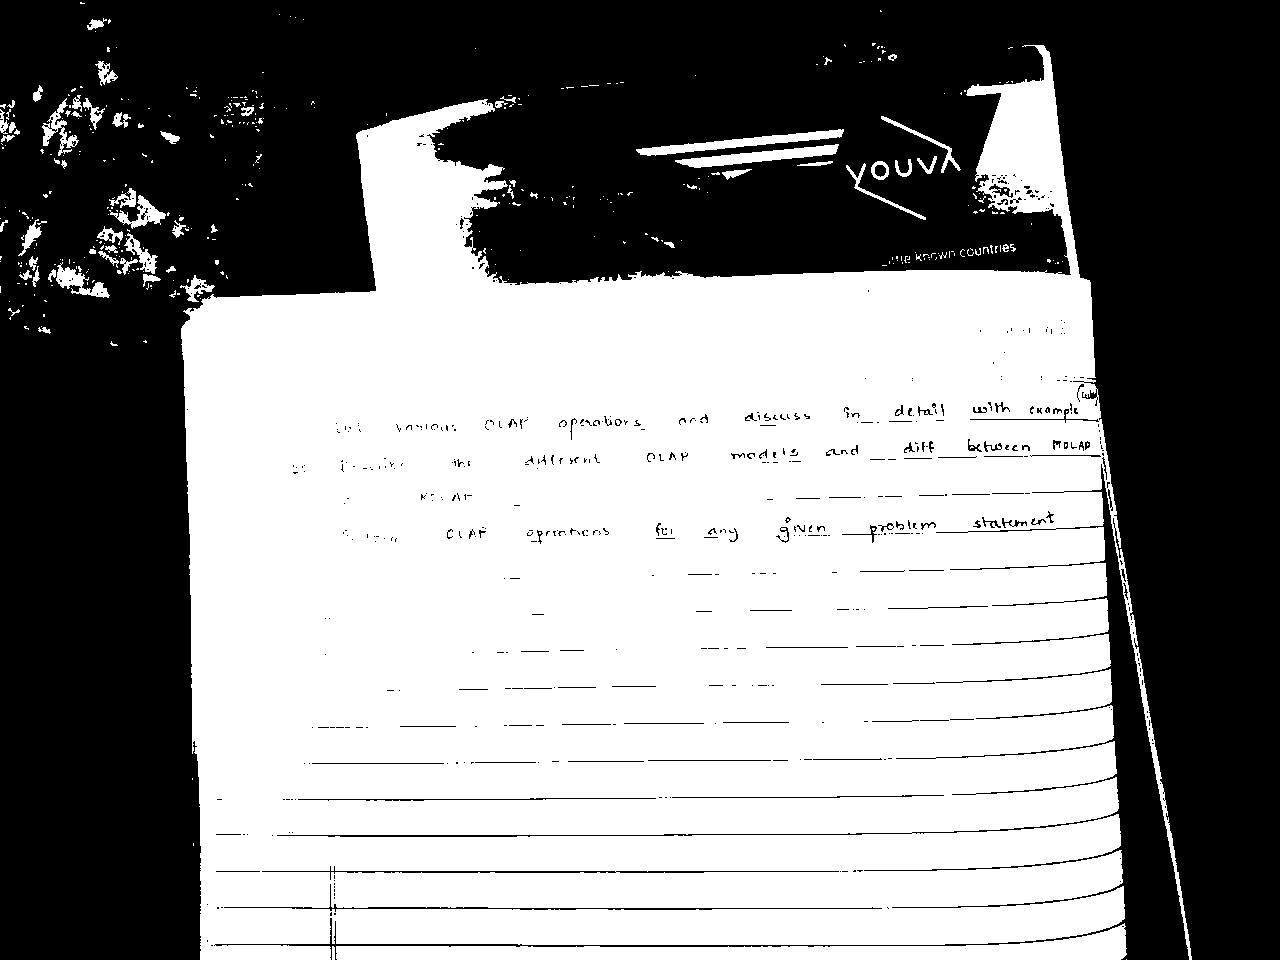 YOUVA
little known countries
(cube)
List various OLAP operations and discuss in detail with example
2) Describe the different OLAP models and diff between MOLAP
ROLAP
OLAP operations for any given problem statement